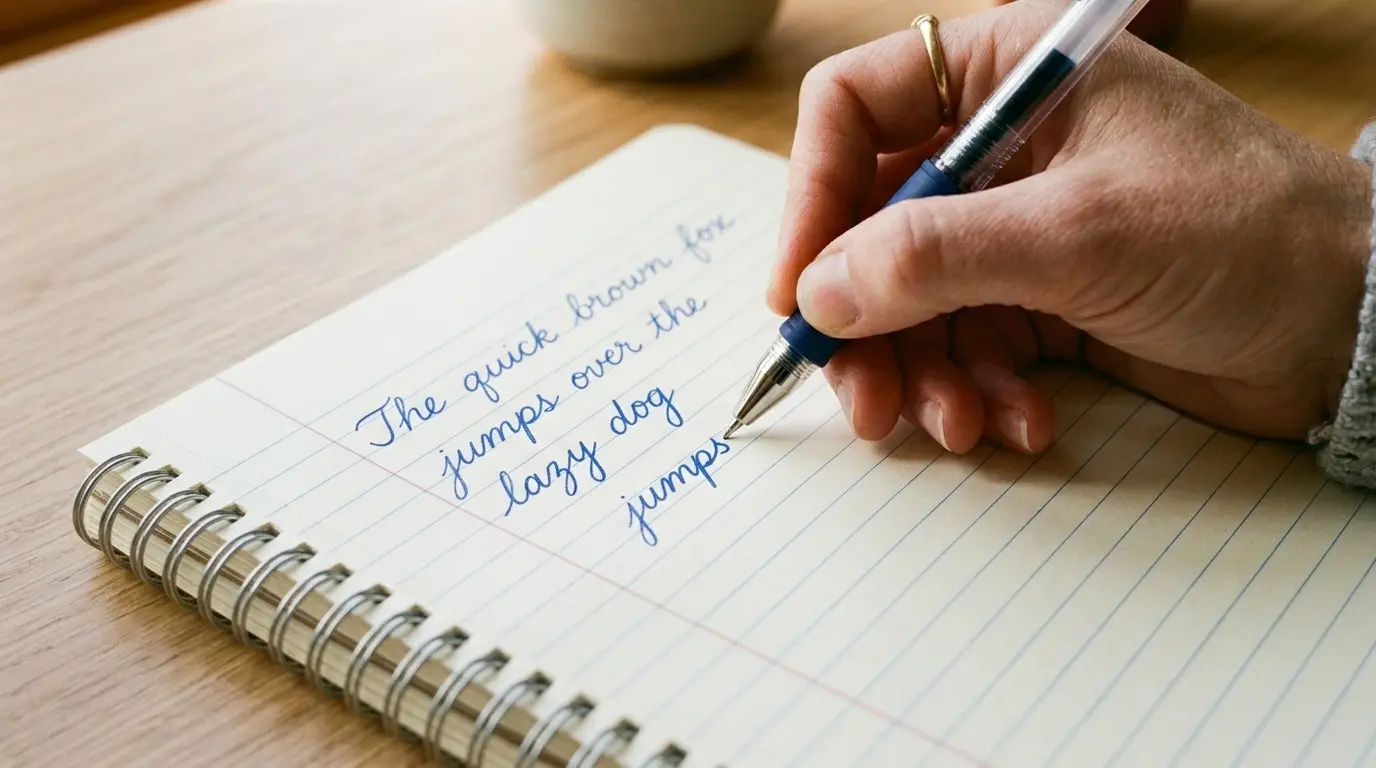 The quick brown fox
jumps over the
lazy dog
jumps